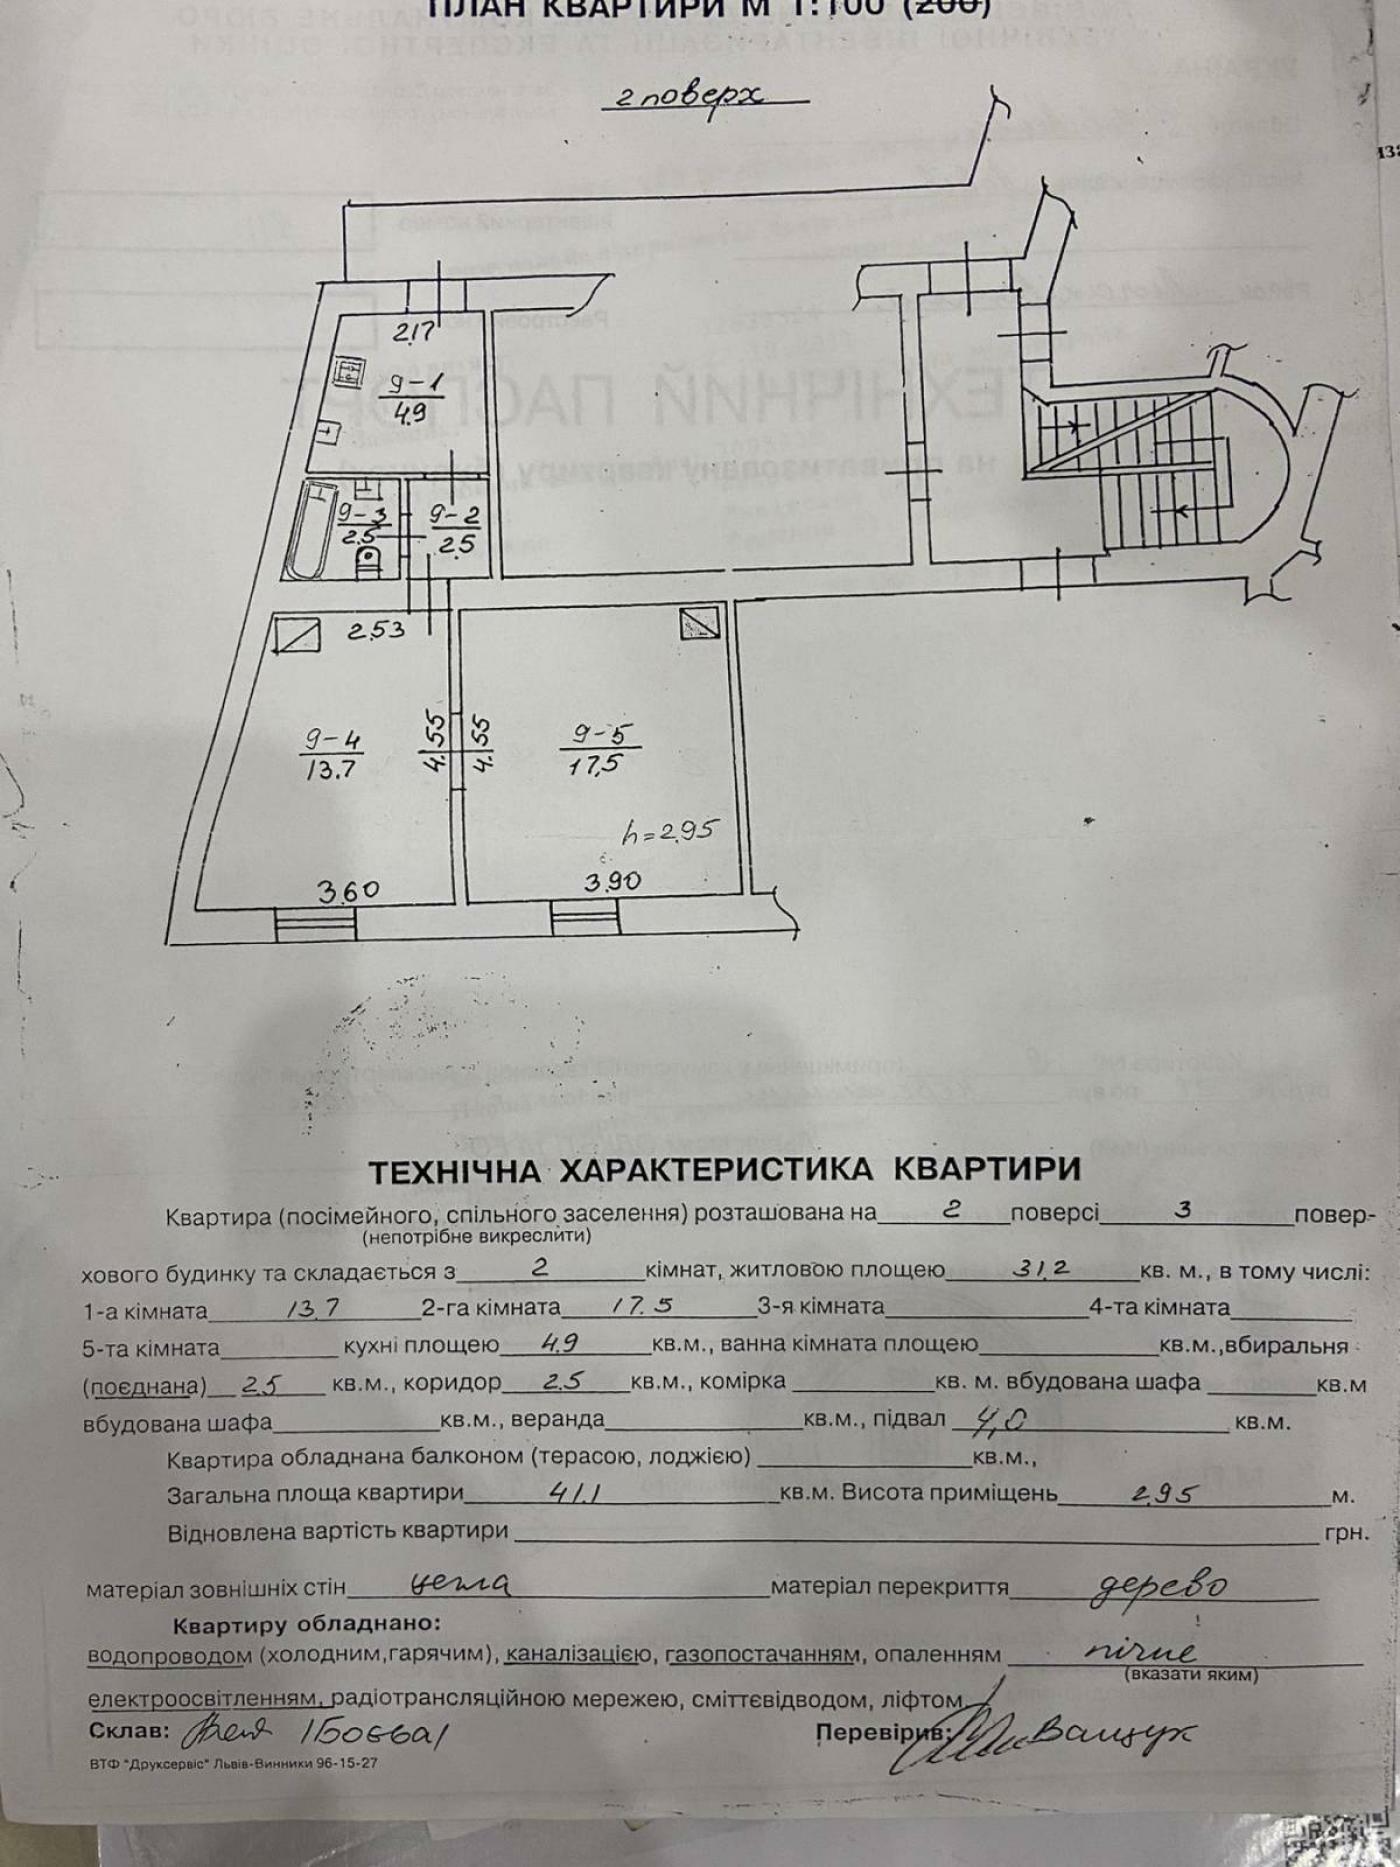 ПЛАН КВАРТИРИ М 1:100 (200)
2 поверх
2.17
9-1
4.9
9-3
2.5
9-2
2.5
2.53
9-4
13.7
4.55
4.55
9-5
17,5
h=2.95
3.60
3.90
ТЕХНІЧНА ХАРАКТЕРИСТИКА КВАРТИРИ
Квартира (посімейного, спільного заселення) розташована на 2 поверсі 3 повер-
(непотрібне викреслити)
хового будинку та складається з 2 кімнат, житловою площею 31,2 кв. м., в тому числі:
1-а кімната 13.7 2-га кімната 17.5 3-я кімната 4-та кімната
5-та кімната кухні площею 4.9 кв.м., ванна кімната площею кв.м.,вбиральня
(поєднана) 2.5 кв.м., коридор 2.5 кв.м., комірка кв. м. вбудована шафа кв.м
вбудована шафа кв.м., веранда кв.м., підвал 4,0 кв.м.
Квартира обладнана балконом (терасою, лоджією) кв.м.,
Загальна площа квартири 41.1 кв.м. Висота приміщень 2.95 м.
Відновлена вартість квартири грн.
матеріал зовнішніх стін цегла матеріал перекриття дерево
Квартиру обладнано:
водопроводом (холодним,гарячим), каналізацією, газопостачанням, опаленням пічне
(вказати яким)
електроосвітленням, радіотрансляційною мережею, сміттєвідводом, ліфтом
Склав: Перевірив: Ващук
ВТФ "Друксервіс" Львів-Винники 96-15-27